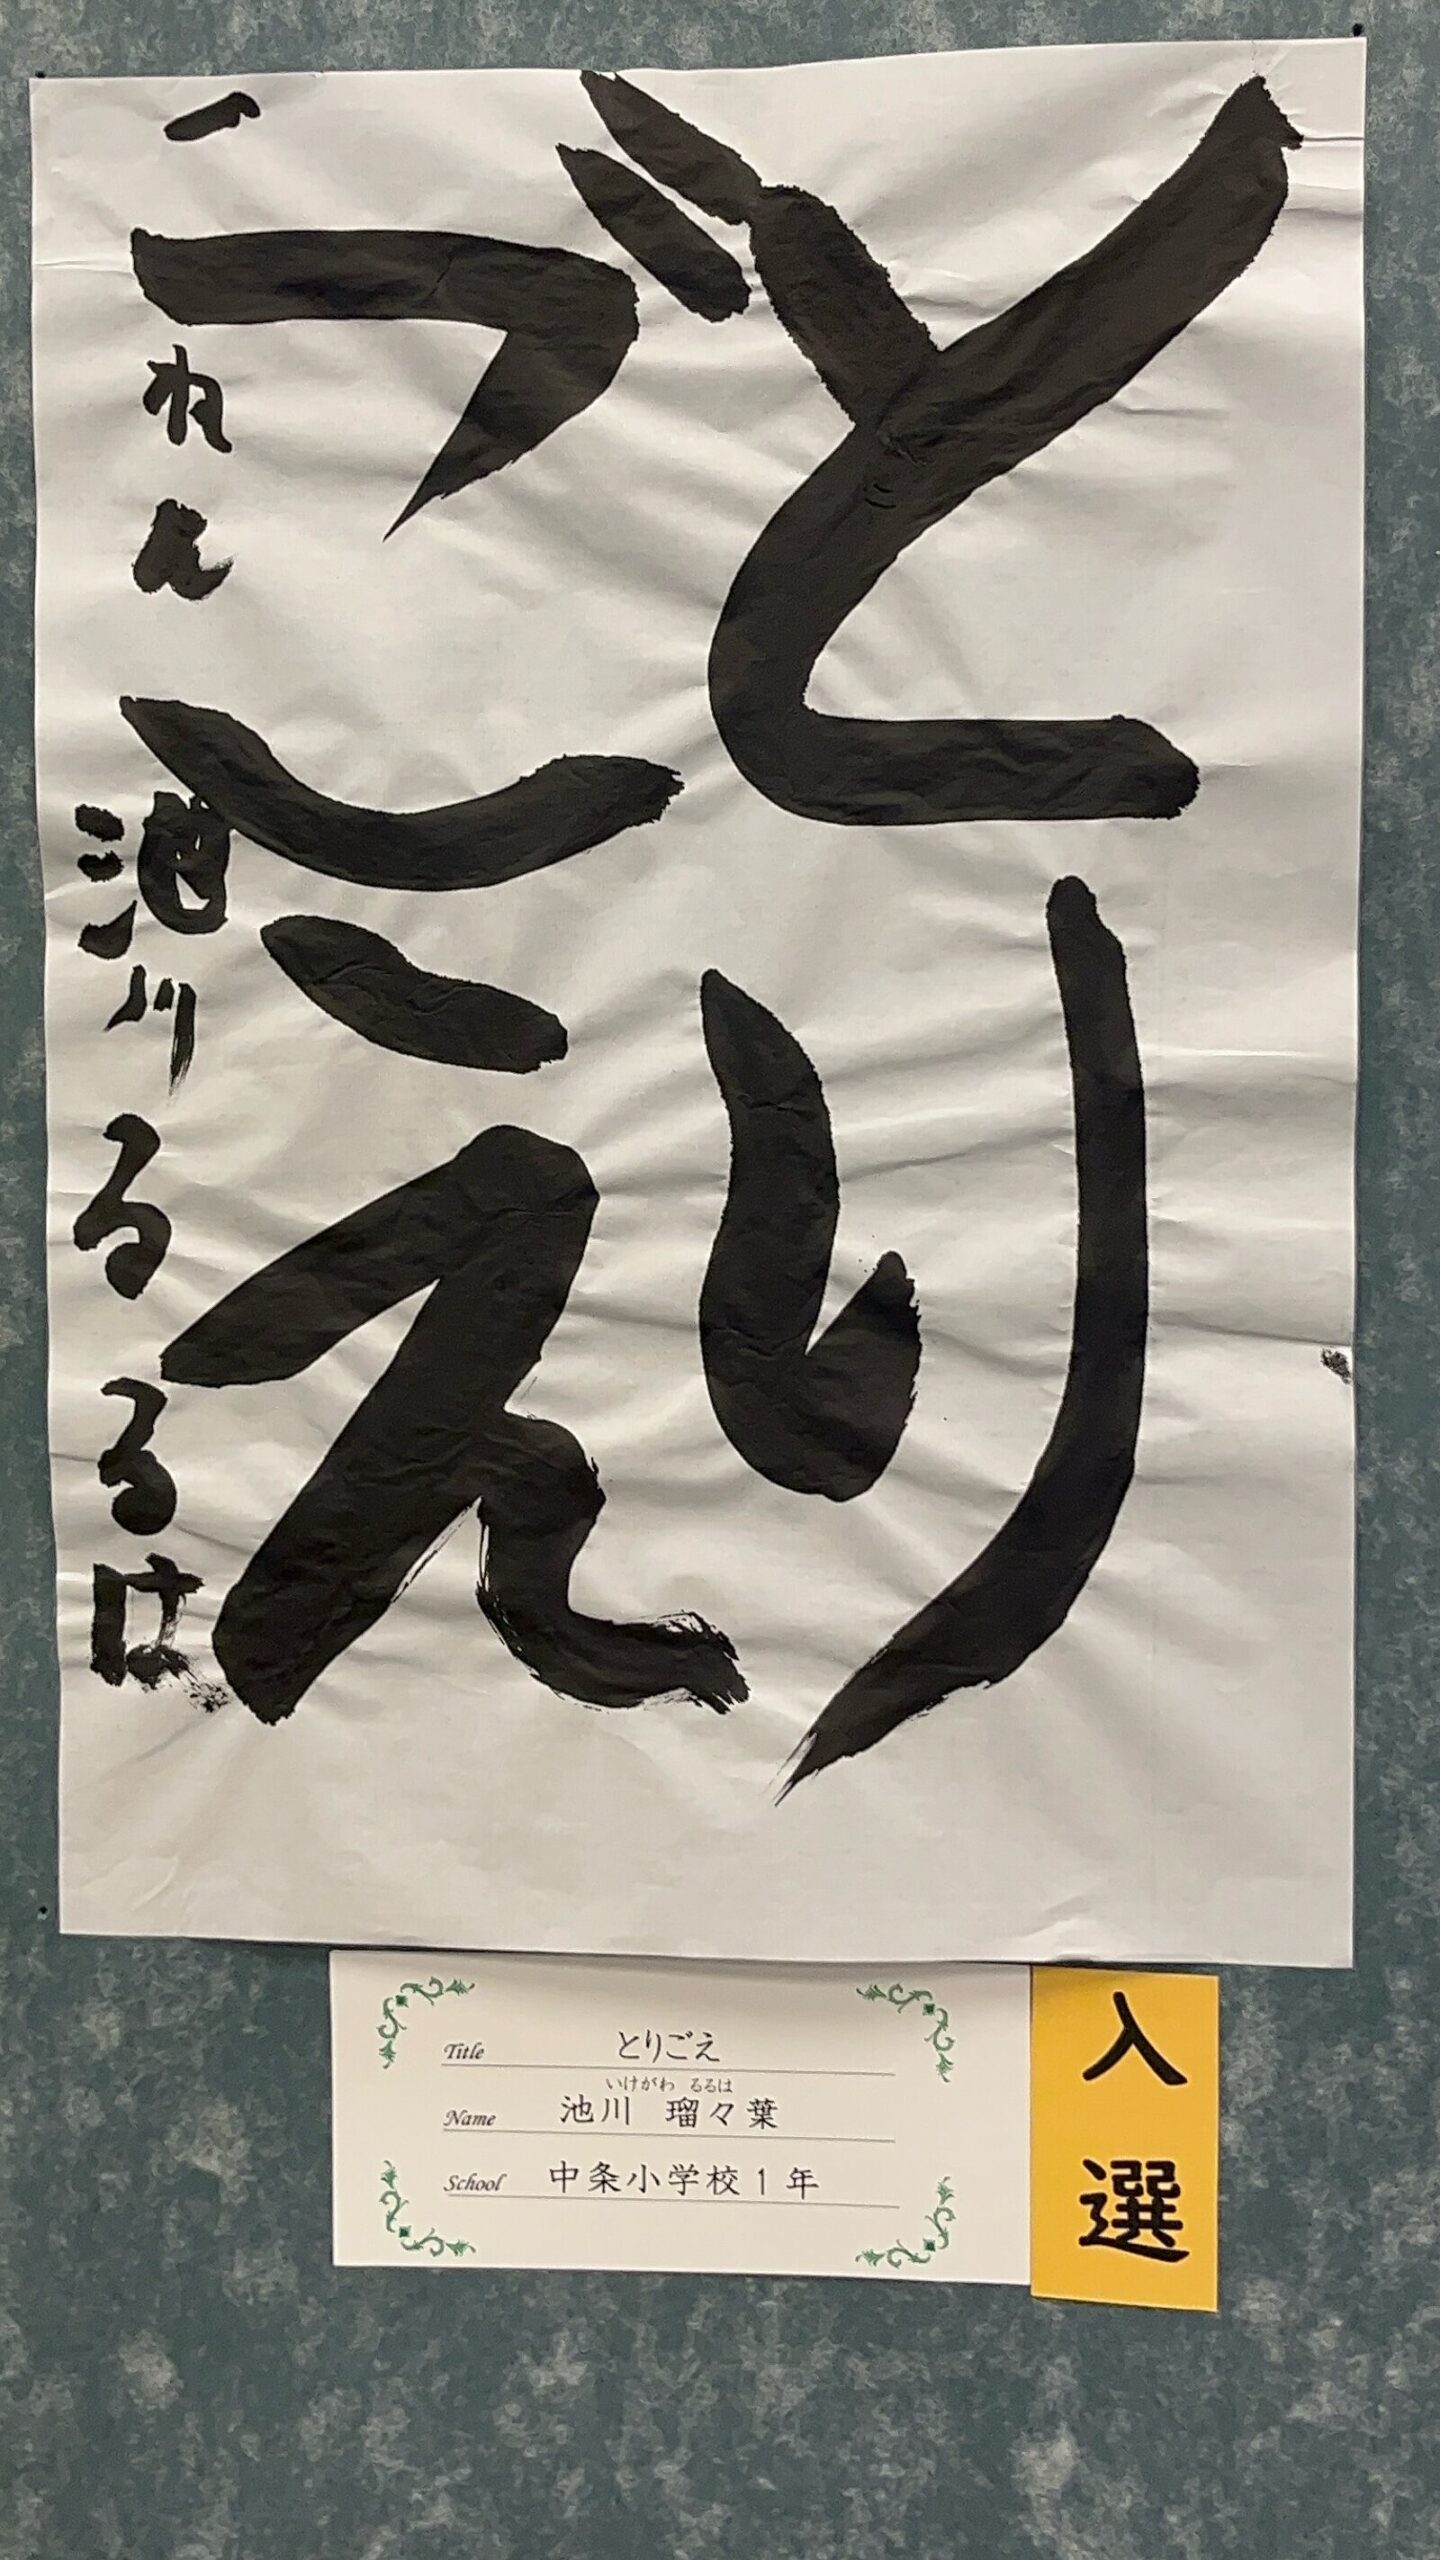 とり
ごえ
一ねん 池川るるは
Title とりごえ
いけがわ るるは
Name 池川 瑠々葉
School 中条小学校1年
入選